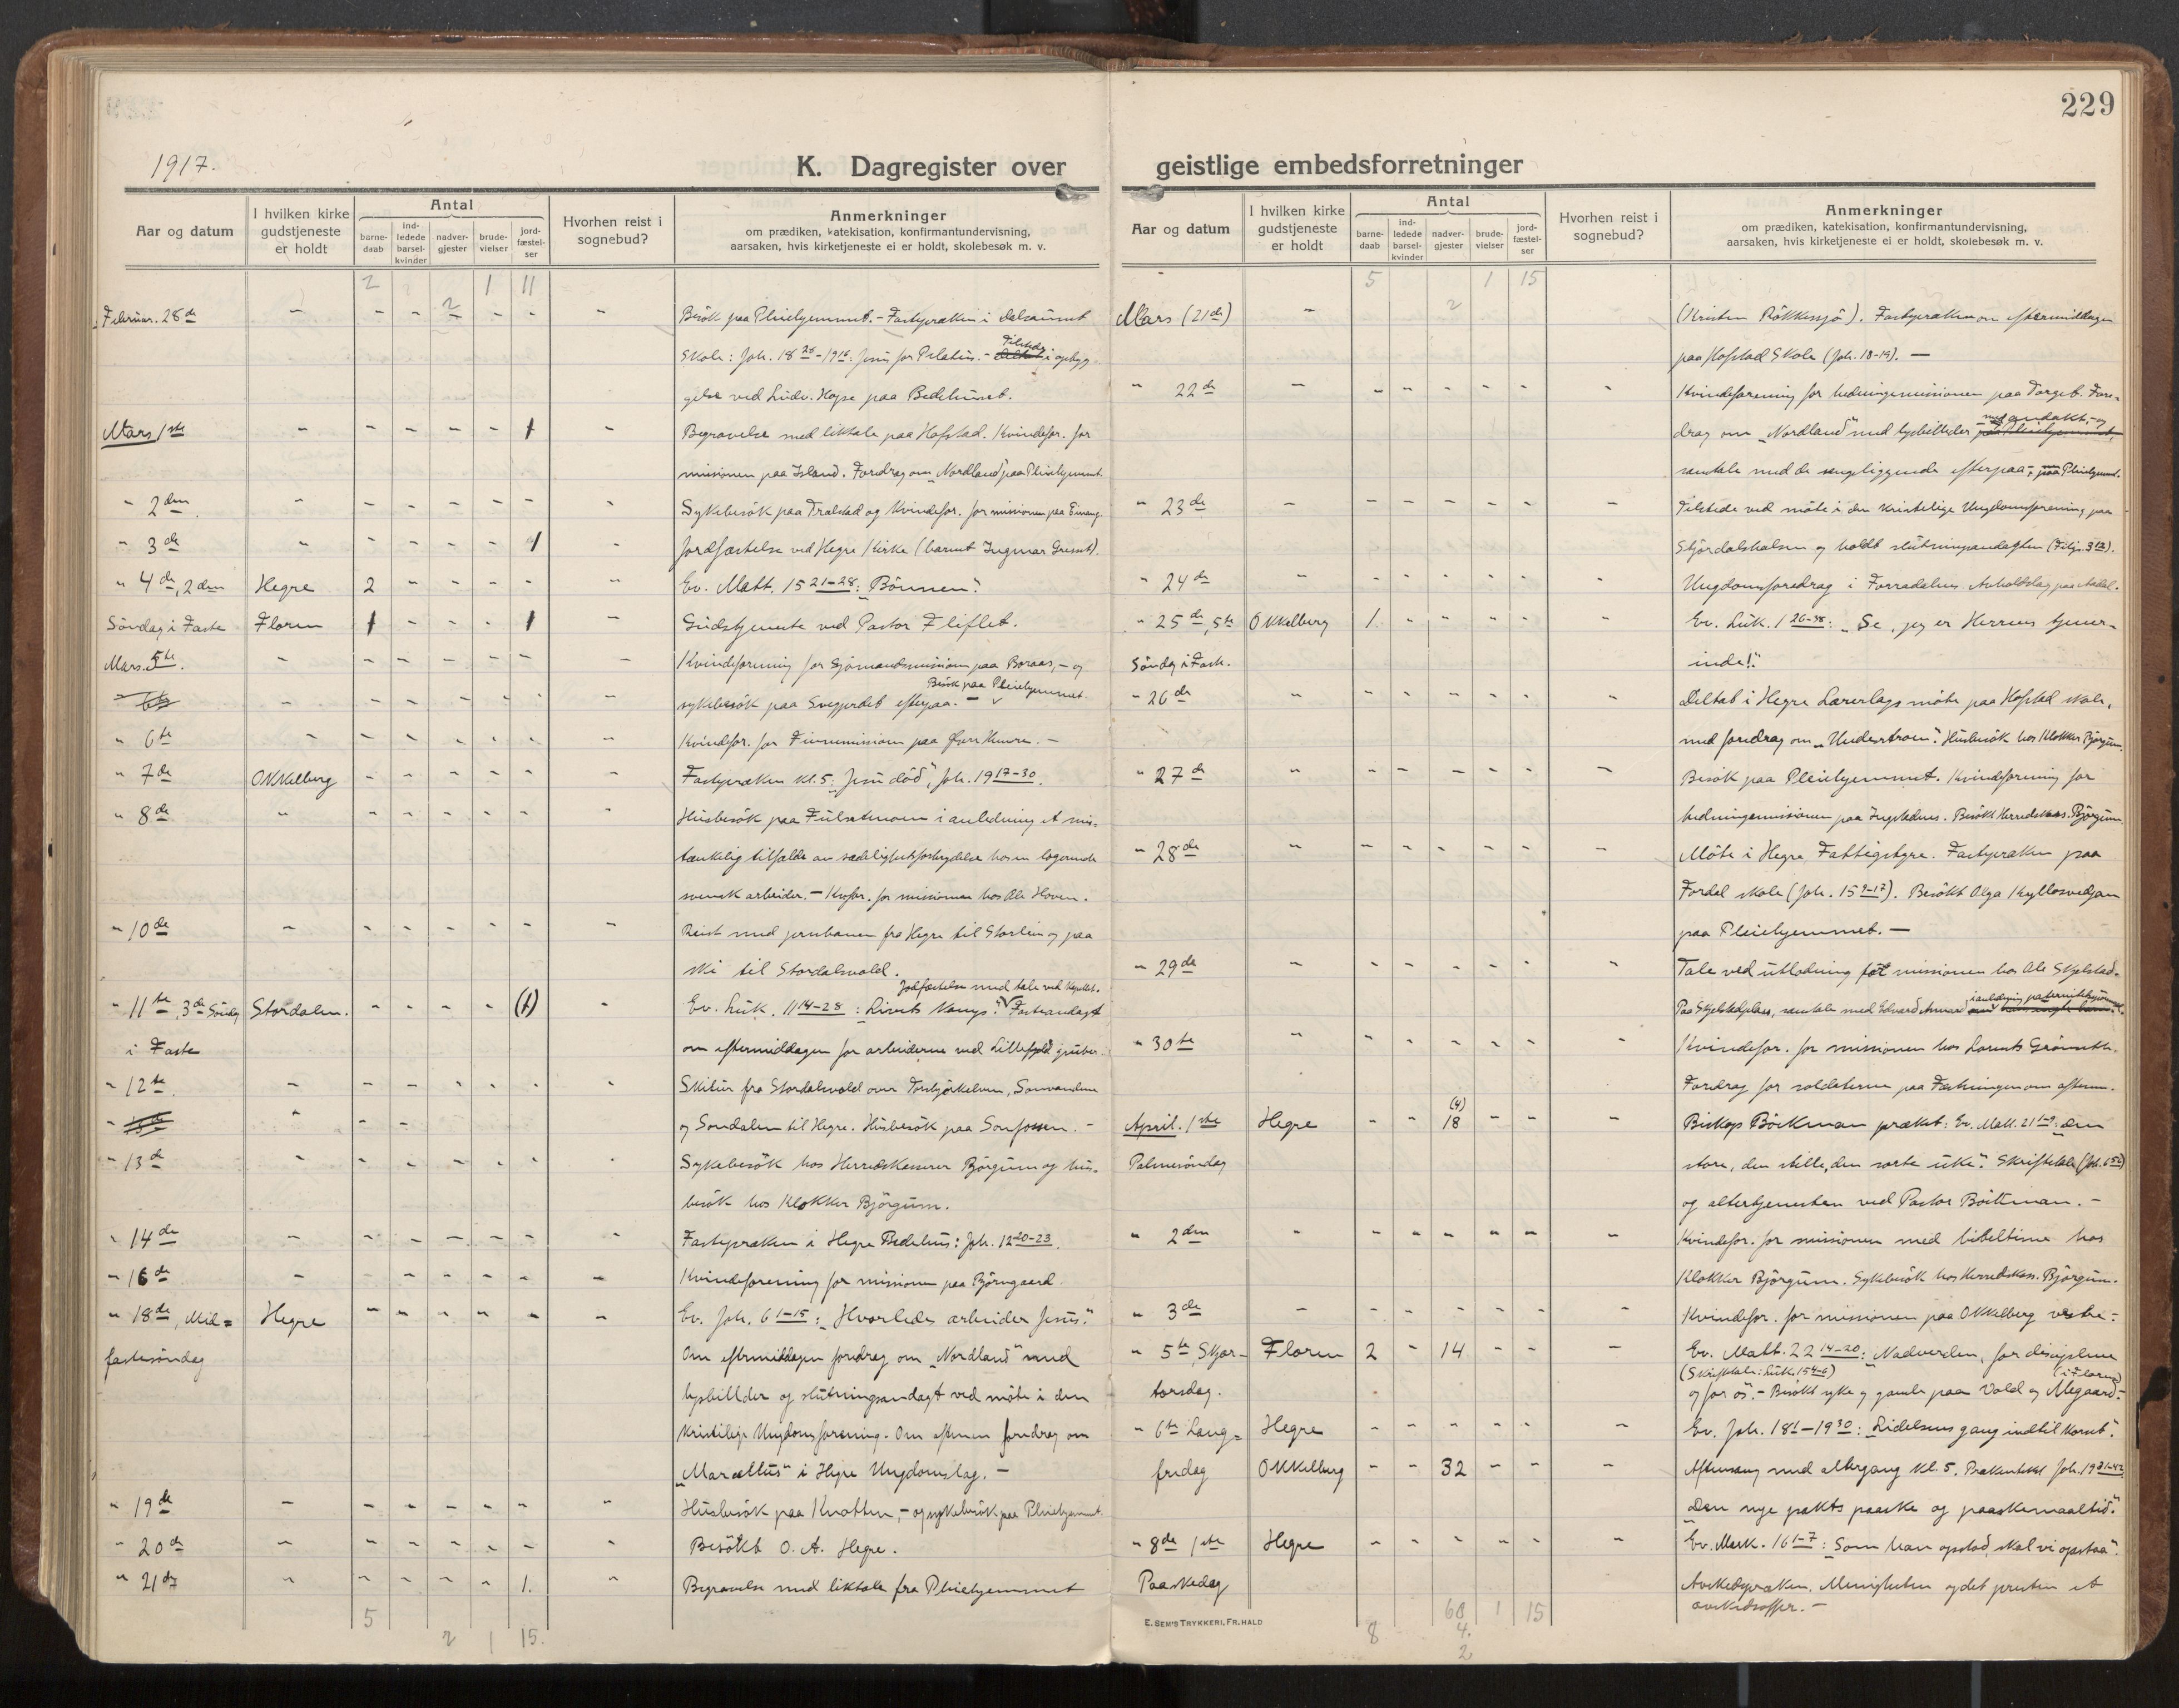 229
1917.
K. Dagregister over geistlige embedsforretninger
Aar og datum
I hvilken kirke gudstjeneste er holdt
Antal
barne-daab
ind-ledede barsel-kvinder
nadver-gjester
brude-vielser
jord-fæstel-ser
Hvorhen reist i sognebud?
Anmerkninger
om prædiken, katekisation, konfirmantundervisning,
aarsaken, hvis kirketjeneste ei er holdt, skolebesøk m. v.
2 1 11
Februar. 28de - - - 2 - - - Besök paa Pleiehjemmet. - Fastepræken i
Skole: Joh. 18 28 - 19 16: Jesus for Pilatus. - Tilstede i opbyg-
gelse ved Ludv. Hope paa Bedehuset.
Mars 1ste - - - - - 1 - Begravelse med liktale paa Hofstad. Kvindefor. for
missionen paa Island. Foredrag om "Nordland" paa Pleiehjemmet
" 2den - - - - - - - Sykebesök paa Tralstad og Kvindefor. for missionen paa
" 3de - - - - - 1 - Jordfæstelse ved Hegre Kirke (barnet Ingmar
" 4de, 2den Hegre 2 - - - - - Ev. Matt. 15 21-28: "Bönnen".
Söndag i Faste Floren 1 - - - 1 - Gudstjeneste ved Pastor Fliflet.
Mars. 5te. - - - - - - - Kvindeforening for Sjömandsmission paa Boraas, - og
6te - - - - - - - sykebesök paa efterpaa. - Besök paa Pleiehjemmet
" 6te - - - - - - - Kvindefor. for Finnemission paa
" 7de Okkelberg - - - - - - Fastepræken kl. 5: "Jesu död", Joh. 19 17-30.
" 8de - - - - - - - Husbesök paa i anledning et mis-
tænkelig tilfælde av sædelighetsforbrydelse hos en logerende
svensk arbeider. - Kvfor. for missionen hos Ole Hoven.
" 10de - - - - - - - Reist med jernbanen fra Hegre til Storlien og paa
ski til Stordalsvold.
Jordfæstelse med tale ved Kapellet.
" 11te, 3de Söndag Stordalen. - - - - (1) - Ev. Luk. 11 14-28: "Livets Kamp". Fasteandagt
i Faste om eftermiddagen for arbeiderne ved Lillefjeld gruber.
" 12te. - - - - - - - Skitur fra Stordalsvold over Sonvandene
" 13de - - - og Sondalen til Hegre. Husbesök paa Sonfossen. -
" 13de - - - - - - - Sykebesök hos Herredskasserer Björgum og hus-
besök hos Klokker Björgum.
" 14de - - - - - - - Fastepræken i Hegre Bedehus: Joh. 12 20-23.
" 16de - - - - - - Kvindeforening for missionen paa Björngaard
" 18de, Mid= Hegre - - - - - - Ev. Joh. 6 1-15: "Hvorledes arbeider Jesus."
fastesöndag Om eftermiddagen foredrag om "Nordland" med
lysbilleder og slutningsandagt ved möte i den
Kristelige Ungdomsforening. Om aftenen foredrag om
"Marcellus" i Hegre Ungdomslag. -
" 19de - - - - - - - Husbesök paa Knotten, - og sykebesök paa Pleiehjemmet.
" 20de - - - - - - - Besökt O. A. Hegre.
" 21de - - - - - 1. - Begravelse med liktale fra Pleiehjemmet
5 2 1 15.
Aar og datum
I hvilken kirke gudstjeneste er holdt
Antal
barne-daab
ind-ledede barsel-kvinder
nadver-gjester
brude-vielser
jord-fæstel-ser
Hvorhen reist i sognebud?
Anmerkninger
om prædiken, katekisation, konfirmantundervisning,
aarsaken, hvis kirketjeneste ei er holdt, skolebesøk m. v.
5 1 15
Mars (21de) - 2 - (Kristen Rökkesjö). Fastepræken om eftermiddagen
paa Hofstad Skole (Joh. 18-19). -
" 22de - - - - - - - Kvindeforening for hedningemissionen paa Fore-
drag om "Nordland" med lysbilleder med andakt, - og
samtale med de sengeliggende efterpaa -, paa Pleiehjemmet.
" 23de - - - - - - - Tilstede ved möte i den kristelige Ungdomsforening paa
Stjördalshalsen og holdt slutningsandagten
" 24de - - - - - - - Ungdomsforedrag i Forradalens Avholdslag paa
" 25de, 5te Okkelberg 1. - - - - - Ev. Luk. 1 26-38: "Se, jeg er Herrens tjener-
Söndag i Fast. inde!"
" 26de - - - - - - - Deltat i Hegre Lærerlags möte paa Hofstad skole,
med foredrag om "Undertroen". Husbesök hos Klokker Björgum.
" 27de - - - - - - - Besök paa Pleiehjemmet. Kvindeforening for
hedningemissionen paa Ingstadnes. Besökt Herredskass. Björgum.
" 28de - - - - - - - Möte i Hegre Fattigstyre. Fastepræken paa
Fordal skole (Joh. 15 9-17). Besökt Olga
paa Pleiehjemmet. -
" 29de - - - - - - - Tale ved utlodning for missionen hos Ole Skjelstad.
Paa Skjelstadplass, samtale med Edvard i anledning
" 30te - - - - - - - Kvindefor. for missionen hos Lorents
Foredrag for soldaterne paa Fæstningen om aftenen.
April. 1ste Hegre - - (4) 18 - - - Biskop Böckman præket: Ev. Matt. 21 1-9: "Den
Palmesöndag store, den stille, den sorte uke". Skriftetale
og altertjenesten ved Pastor Böckman. -
" 2den - - - - - - - Kvindefor. for missionen med bibeltime hos
Klokker Björgum. Sykebesök hos Herredskass. Björgum.
" 3de - - - - - - - Kvindefor. for missionen paa Okkelberg vestre -
" 5te, Skjær- Floren 2 - 14 - - - Ev. Matt. 22 14-20: "Nadverden, for disciplene
(Skriftetale: Luk. 15 4-6) (i Floren)
torsdag. og for os". - Besökt syke og gamle paa Vold og
" 6te Lang= Hegre - - - - - - Ev. Joh. 18 1 - 19 30: "Lidelsens gang indtil korset".
fredag Okkelberg - - 32 - - - Aftensang med altergang kl. 5. Prækentekst Joh. 19 31-42
"Den nye pakts paaske og paaskemaaltid."
" 8de 1ste Hegre - - - - - - Ev. Mark. 16 1-7: "Som han opstod, skal vi opstaa".
Paaskedag Avskedspræken. Menigheten gav det presten et
avskedsoffer. -
8 60 4. 2 1 15
E. SEM'S TRYKKERI, FR.HALD